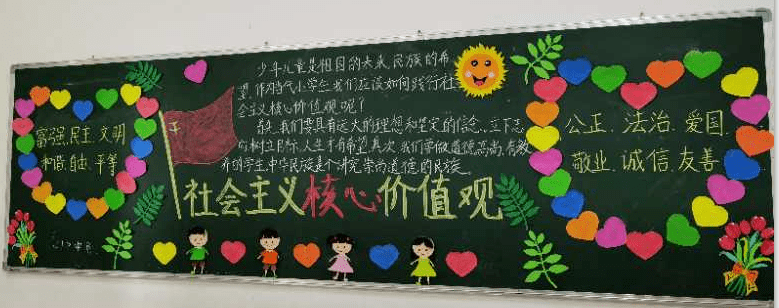 富强.民主.文明
和谐.自由.平等
少年儿童是祖国的未来,民族的希
望,作为当代小学生我们应该如何践行社
会主义核心价值观呢?
首先,我们要具有远大的理想和坚定的信念,立下志
向树立目标,人生才有希望.其次,我们要做道德高尚,有教
养的学生.中华民族是个讲究崇尚道德的民族.
社会主义核心价值观
公正、法治、爱国、
敬业、诚信、友善